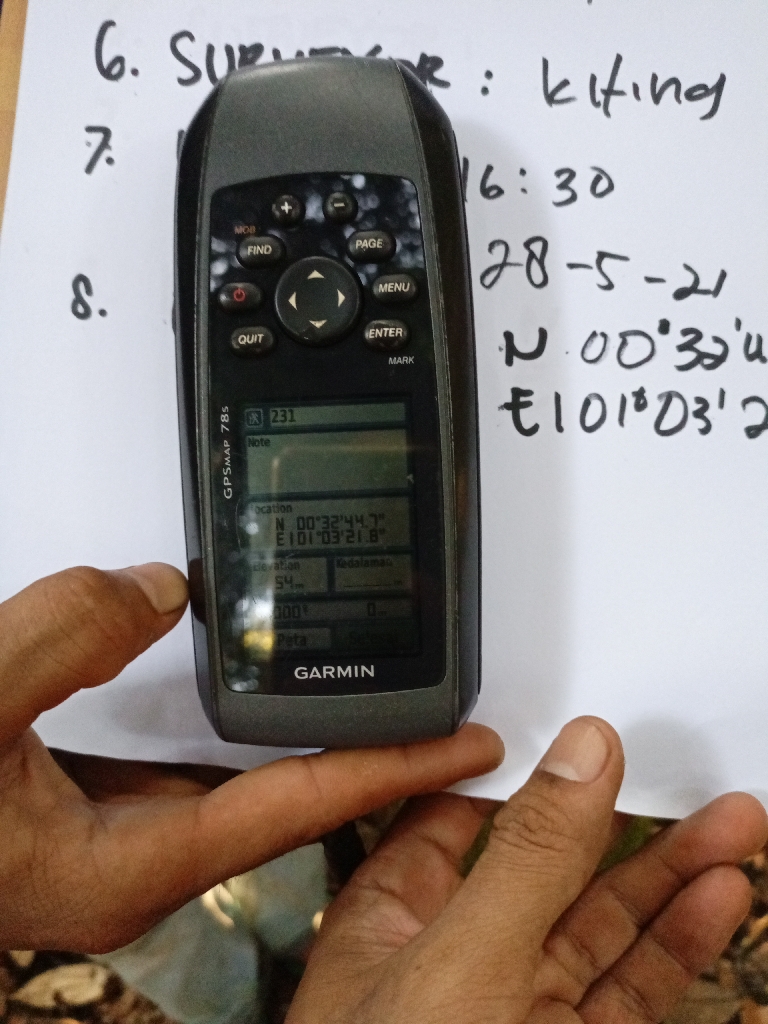 6. SURVEYOR : kiting
7. 16:30
8. 28-5-21
N 00°32'4
E101°03'2
+ -
MOB
FIND PAGE
MENU
QUIT ENTER
MARK
GPSMAP 78s
231
Note
Location
N 00°32'44.7"
E101°03'21.8"
Elevation Kedalaman
54m
000° 0m
Peta
GARMIN